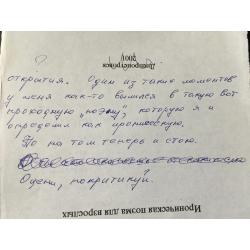 ?
Днепропетровск
2001
открытия. Один из таких моментов
у меня как-то вылился в такую вот
проходную „поэму", которую я и
определил как ироническую.
То на том теперь и стою.
Оцени, покритикуй.
Ироническая поэма для взрослых